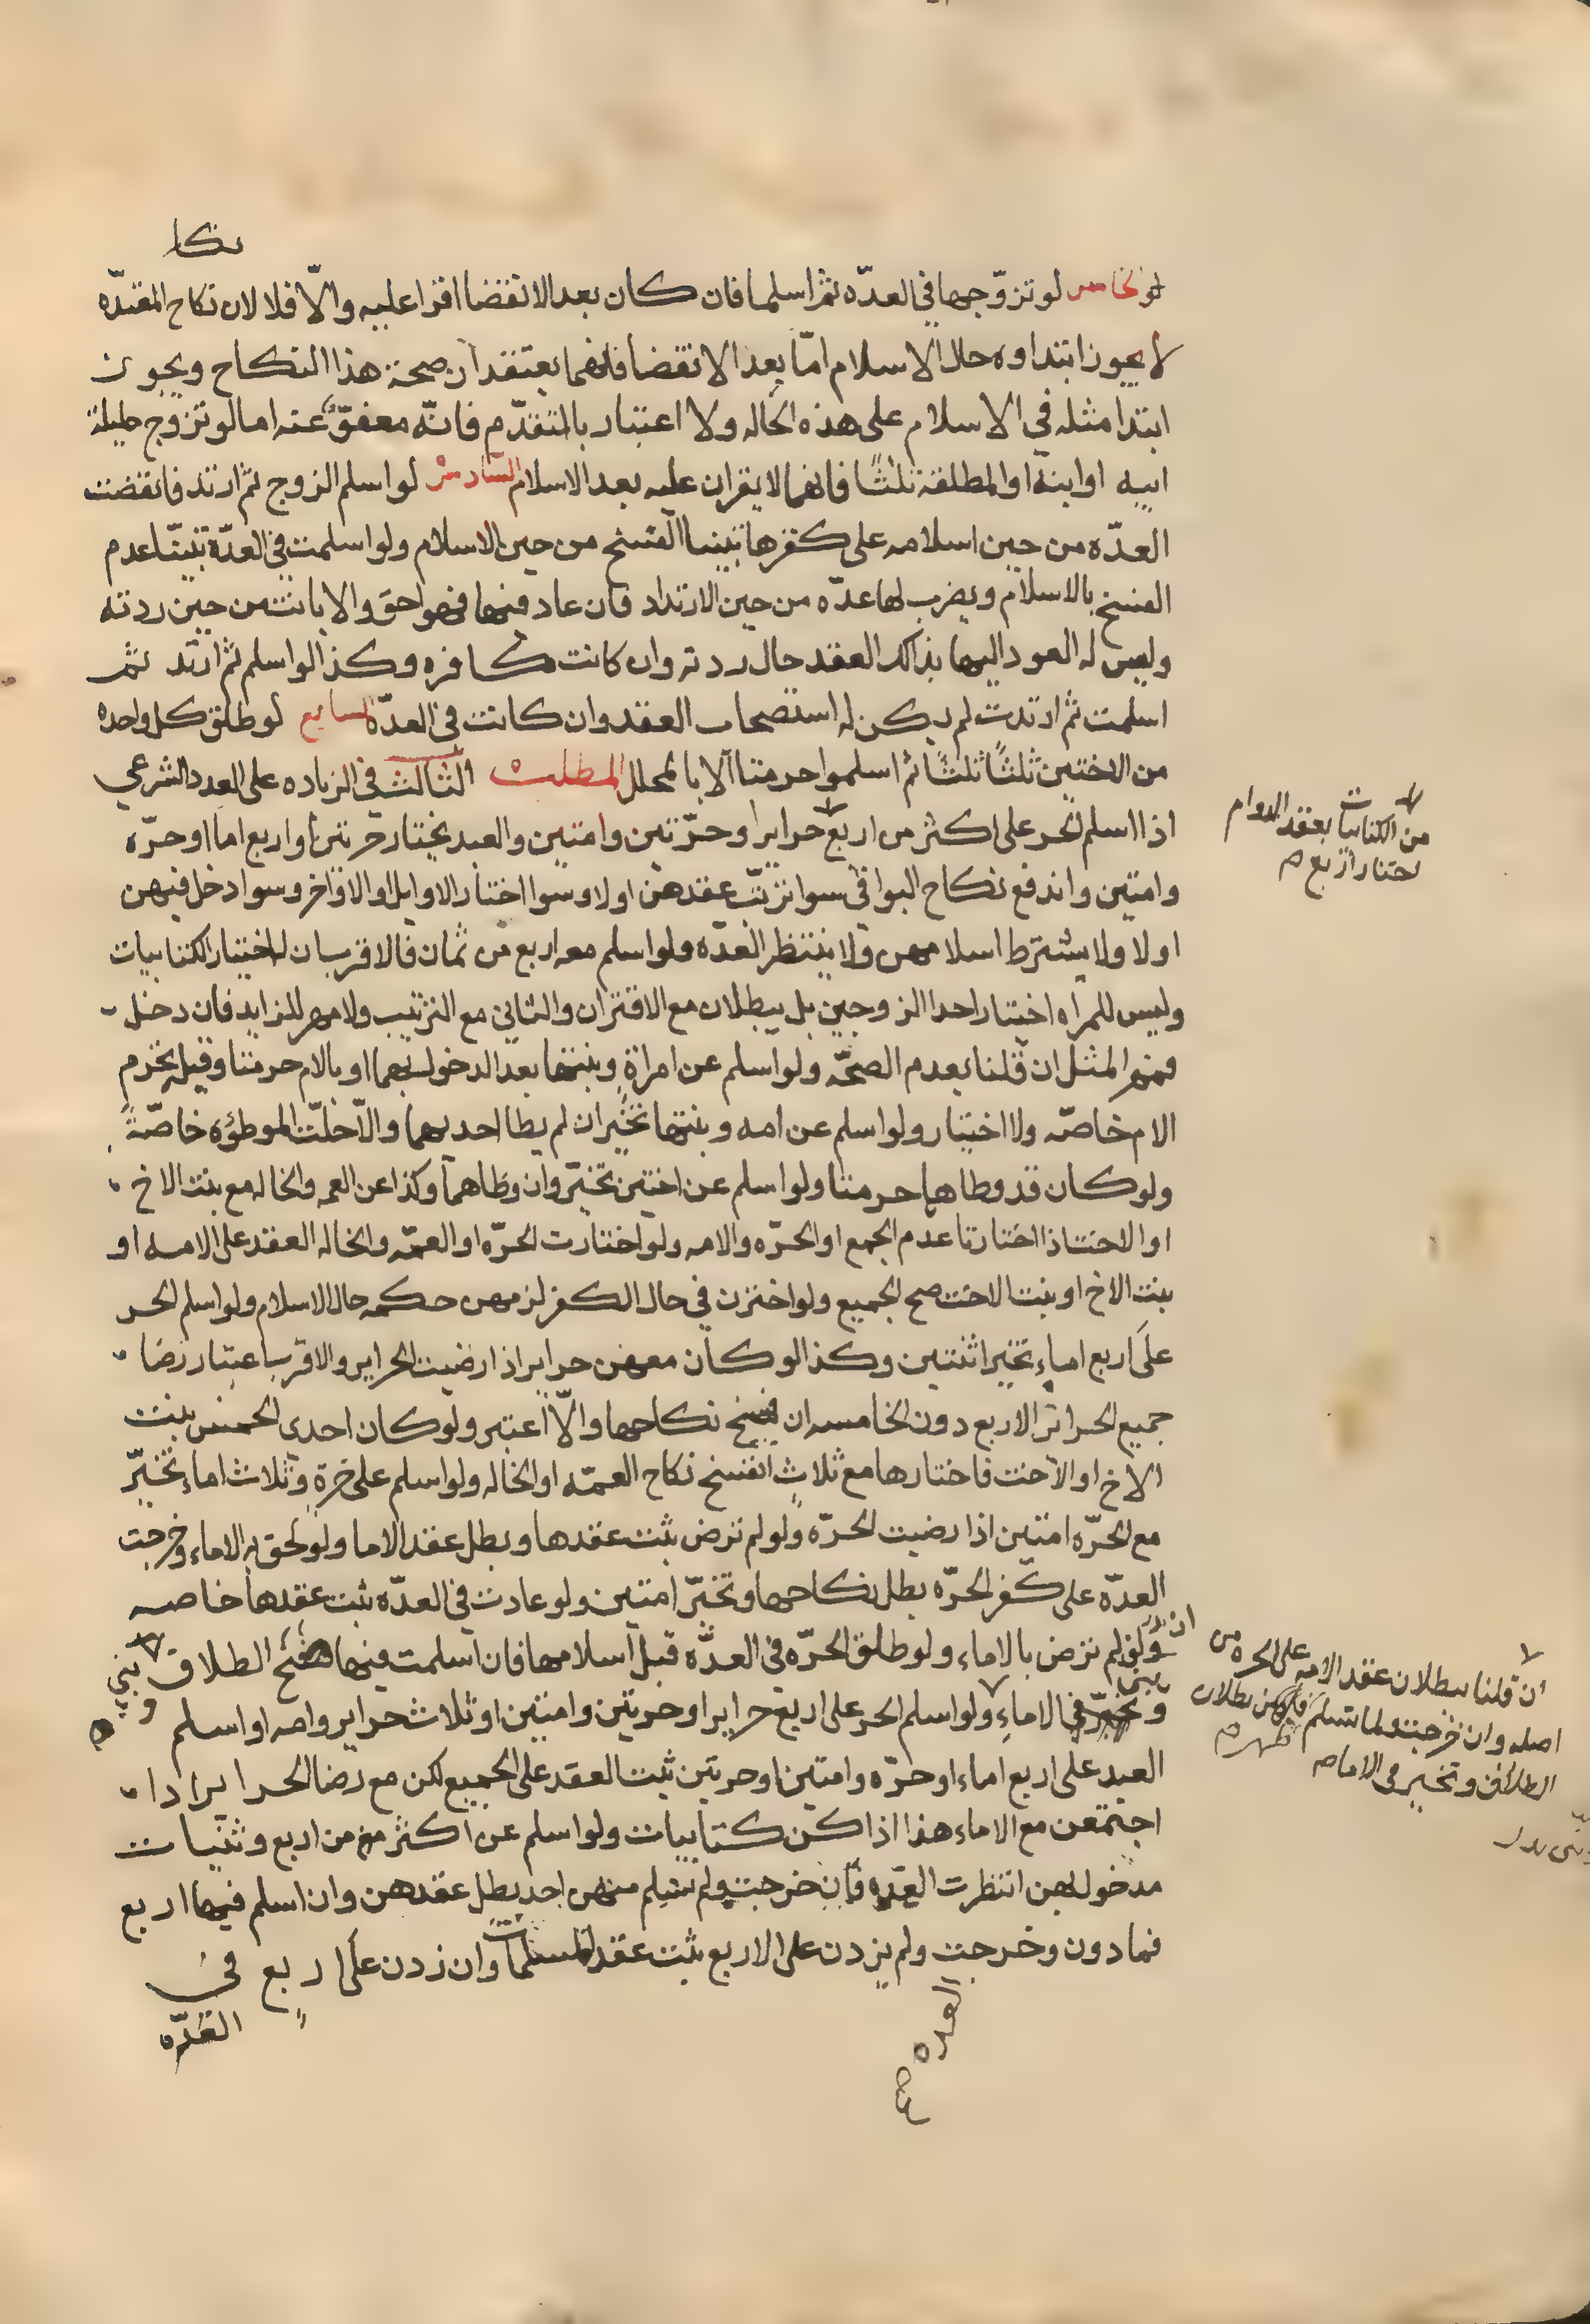 نكا
الخامس لو تزوّجها في العدّه ثم اسلما فان كان بعد الانقضا اقرا عليه والّا فلا لان نكاح المعتدّه
لا يجوز ابتداوه حال الاسلام امّا بعد الانقضا فانهما يعتقدان صحة هذا النكاح ويجوز
ابتدا مثله في الاسلام على هذه الحاله ولا اعتبار بالمتقدّم فانّه معفوّ عنه اما لو تزوج حليلة
ابيه او ابنه او المطلقة ثلثًا فانهما لا يقران عليه بعد الاسلام السادس لو اسلم الزوج ثم ارتد فانقضت
العدّه من حين اسلامه على كفرها تبينا الفسخ من حين الاسلام ولو اسلمت في العدّة تبيّنا عدم
الفسخ بالاسلام ويضرب لها عدّه من حين الارتداد فان عاد فيها فهو احق والا بانت من حين ردته
وليس له العود اليها بذلك العقد حال ردته وان كانت كافره وكذا لو اسلم ثم ارتد ثم
اسلمت ثم ارتدت لم يكن له استصحاب العقد وان كانت في العدّة السابع لو طلق كل واحده
من الاختين ثلثًا ثلثًا ثم اسلموا حرمتا الا بالمحلل المطلب الثالث في الزياده على العدد الشرعي
اذا اسلم الحر على اكثر من اربع حراير او حرّتين وامتين والعبد يختار حرتين او اربع اما او حرّه
وامتين واندفع نكاح البواقي سوا ترتّب عقدهن اولا وسوا اختار الاوايل او الاواخر وسوا دخل فيهن
اولا ولا يشترط اسلامهن ولا ينتظر العدّه ولو اسلم معه اربع من ثمان فالاقرب ان له اختيار الكتابيات
وليس للمراه اختيار احد الزوجين بل يبطلان مع الاقتران والثاني مع الترتيب ولا مهر للزايد فان دخل
فمهر المثل ان قلنا بعدم الصحّه ولو اسلم عن امراةٍ وبنتها بعد الدخول بهما او بالام حرمتا وقبله تحرم
الام خاصّه ولا اختيار ولو اسلم عن امه وبنتها تخيّر ان لم يطا احديهما والّا حلّت الموطؤه خاصّةً
ولو كان قد وطاهما حرمتا ولو اسلم عن اختين تخيّر وان وطاهما وكذا عن العمه والخاله مع بنت الاخ
او الاخت اذا اختارتا عدم الجمع او الحرّه والامه ولو اختارت الحرّه او العمّه والخاله العقد على الامه او
بنت الاخ او بنت الاخت صح الجميع ولو اخترن في حال الكفر لزمهن حكمه حال الاسلام ولو اسلم الحر
على اربع اماءٍ تخير اثنتين وكذا لو كان معهن حراير اذا رضيت الحراير والاقرب اعتبار رضا
جميع الحرائر الاربع دون الخامسه ان فسخ نكاحها والّا اعتبر ولو كان احدى الخمس بنت
الاخ او الاخت فاختارها مع ثلاثٍ انفسخ نكاح العمّه او الخاله ولو اسلم على حرةٍ وثلاث اماء تخيّر
مع الحرّه امتين اذا رضيت الحرّه ولو لم ترض ثبت عقدها وبطل عقد الاما ولو لحق به الاماء وخرجت
العدّه على كفر الحرّه بطل نكاحها وتخيّر امتين ولو عادت في العدّه ثبت عقدها خاصه
ان لم ترض بالاماء ولو طلق الحرّه في العدّه قبل اسلامها فان اسلمت فيها صح الطلاق
في الاماءِ ولو اسلم الحر على اربع حراير او حرتين وامتين او ثلاث حراير وامه او اسلم
العبد على اربع اماء او حرّه وامتين او حرتين ثبت العقد على الجميع لكن مع رضا الحراير اذا
اجتمعن مع الاماء هذا اذا كن كتابيات ولو اسلم عن اكثر من اربع وثنيات
مدخول بهن انتظرت العدّه فان خرجت ولم تسلم منهن احد بطل عقدهن وان اسلم فيها اربع
فما دون وخرجت ولم يزدن على الاربع ثبت عقد المسلمات وان زدن على اربع في
العدّه
من الكتابيات بعقد الدوام
اختار اربع
ان قلنا ببطلان عقد الامه على الحره من
اصله وان خرجت ولما تسلم بطلان
الطلاق وتخير في الاما
العده